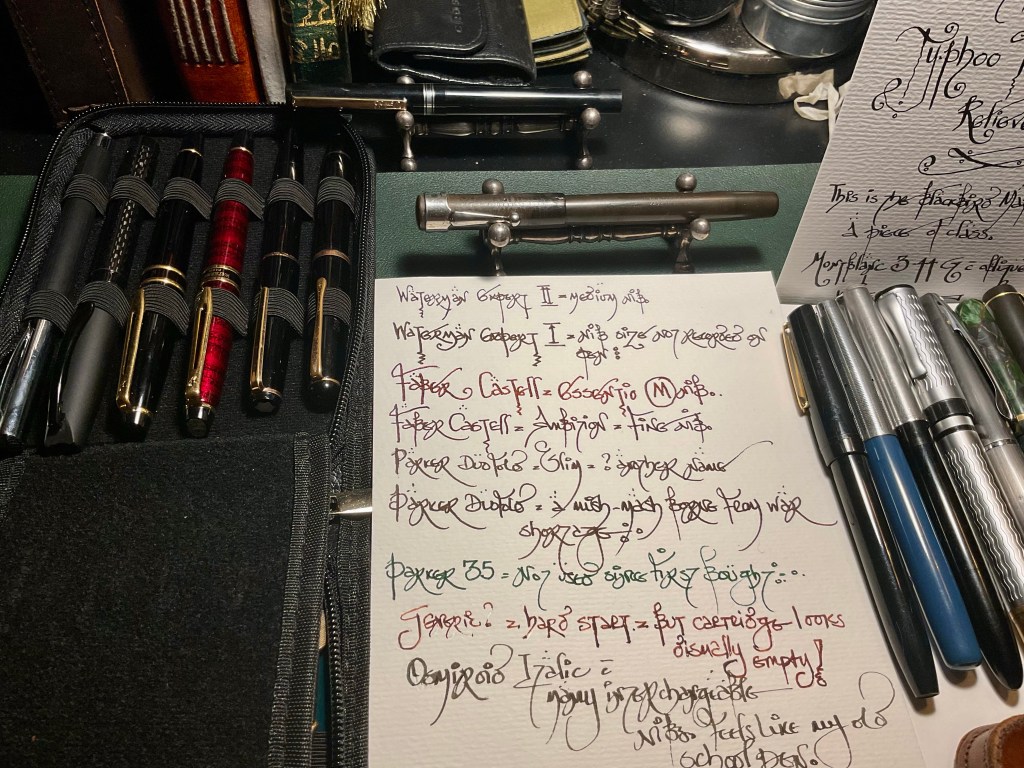 Waterman Expert II = medium nib
Waterman Expert I = nib size not recorded on
pen
Faber Castell = Essentio M Nib..
Faber Castell = Ambition = Fine nib.
Parker Duofold = Slim = ? another name
Parker Duofold = a mish-mash borne from war
shortage
Parker 35 = Not used since first bought
Generic? = hard start = but cartridge looks
visually empty!
Osmiroid Italic =
many interchangeable
Nibs. Feels like my old
school pen.
Typhoo
This is the Blackbird
A piece of class.
Montblanc 3